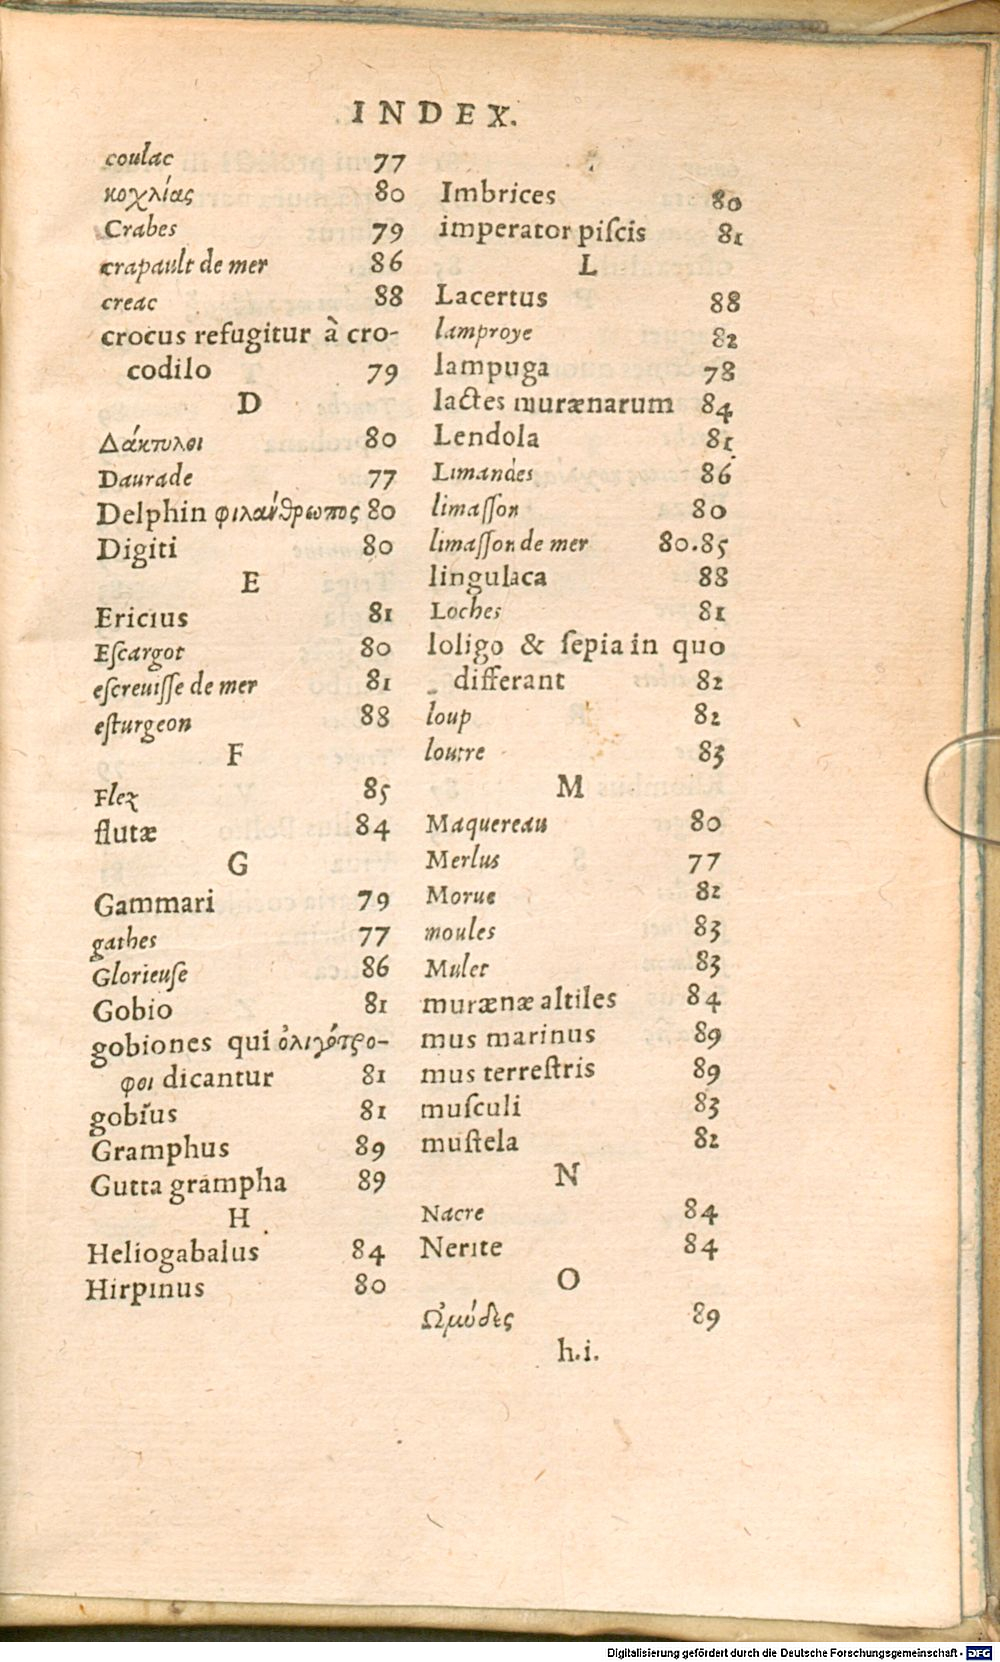 INDEX.
coulac 77
κοχλίας 80
Crabes 79
crapault de mer 86
creac 88
crocus refugitur à cro-
codilo 79
D
Δάκτυλοι 80
Daurade 77
Delphin φιλάνθρωπος 80
Digiti 80
E
Ericius 81
Eſcargot 80
eſcreuiſſe de mer 81
eſturgeon 88
F
Flez 85
flutæ 84
G
Gammari 79
gathes 77
Glorieuſe 86
Gobio 81
gobiones qui ὀλιγότρο-
φοι dicantur 81
gobius 81
Gramphus 89
Gutta grampha 89
H
Heliogabalus 84
Hirpinus 80
Imbrices 80
imperator piſcis 81
L
Lacertus 88
lamproye 82
lampuga 78
lactes murænarum 84
Lendola 81
Limandes 86
limaſſon 80
limaſſon de mer 80.85
lingulaca 88
Loches 81
loligo & ſepia in quo
differant 82
loup 82
loutre 83
M
Maquereau 80
Merlus 77
Morue 82
moules 83
Mulet 83
murænæ altiles 84
mus marinus 89
mus terreſtris 89
muſculi 83
muſtela 82
N
Nacre 84
Nerite 84
O
Ὠμύδες 89
h.i.
Digitalisierung gefördert durch die Deutsche Forschungsgemeinschaft - DFG